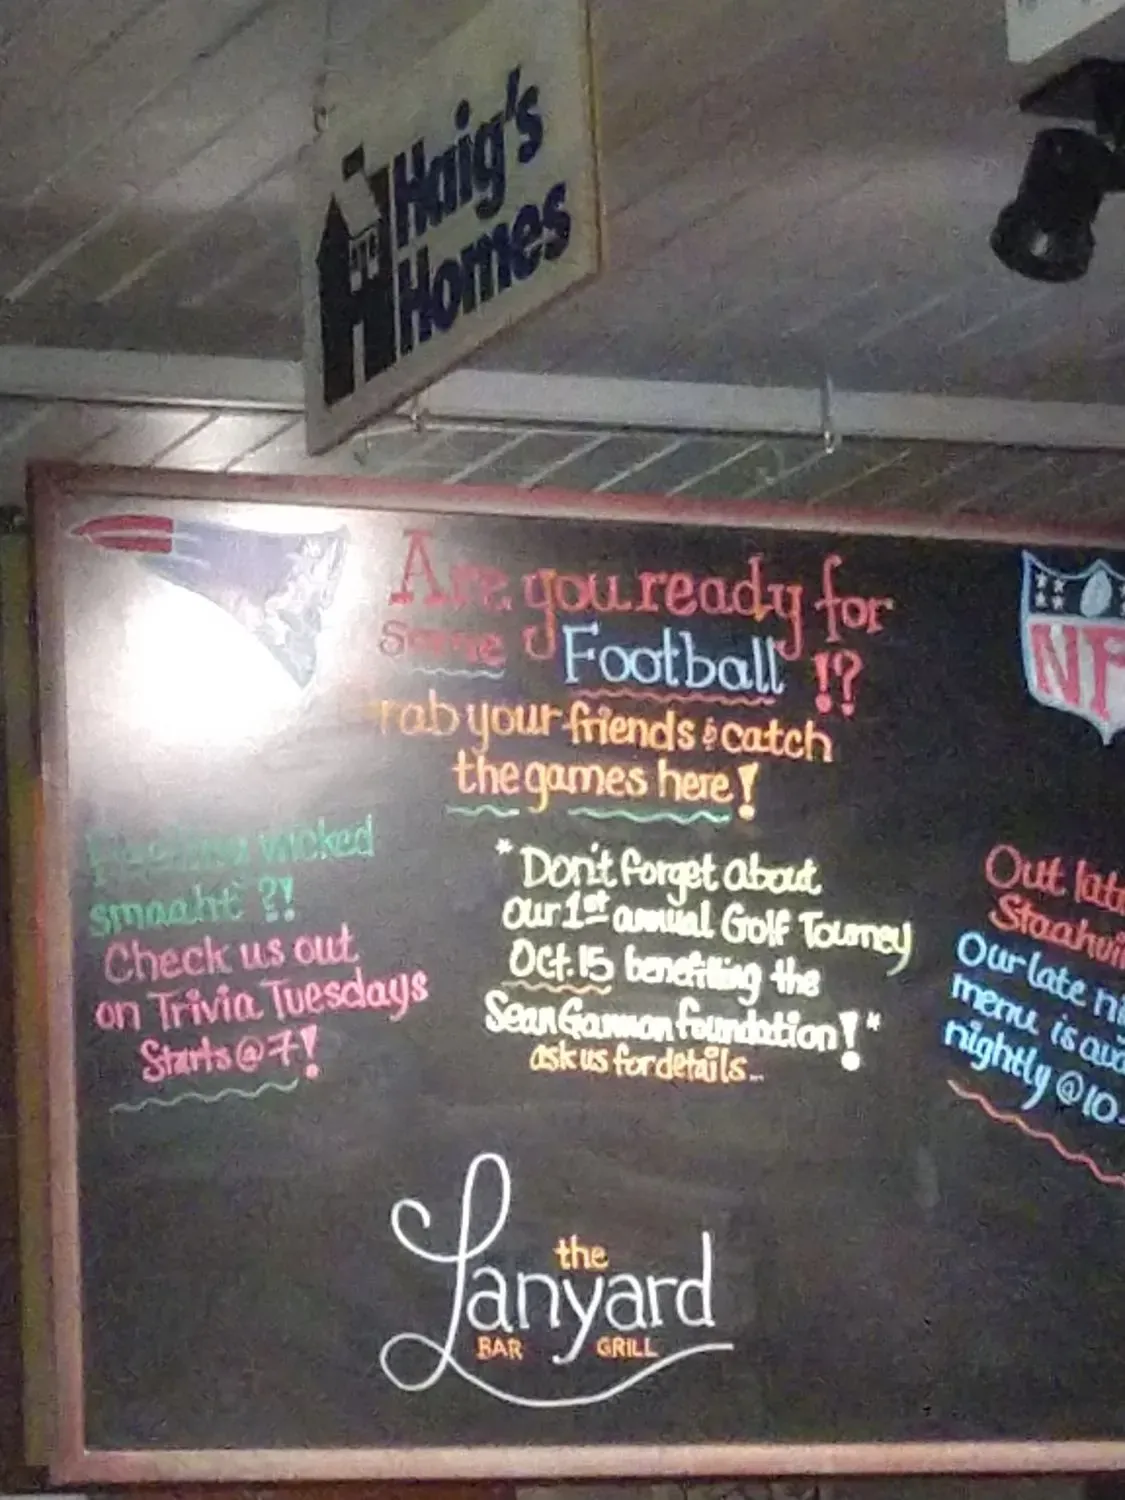 Haig's
Homes
Are you ready for
Some Football !?
rab your friends & catch
the games here!
wicked
smaaht ?!
Check us out
on Trivia Tuesdays
Starts @ 7!
* Don't forget about
our 1st annual Golf Tourney
Oct. 15 benefitting the
Sean Gannon foundation! *
ask us for details...
NF
Out lat
Staahvi
Our late ni
menu is ava
nightly @ 10
the
Lanyard
BAR GRILL